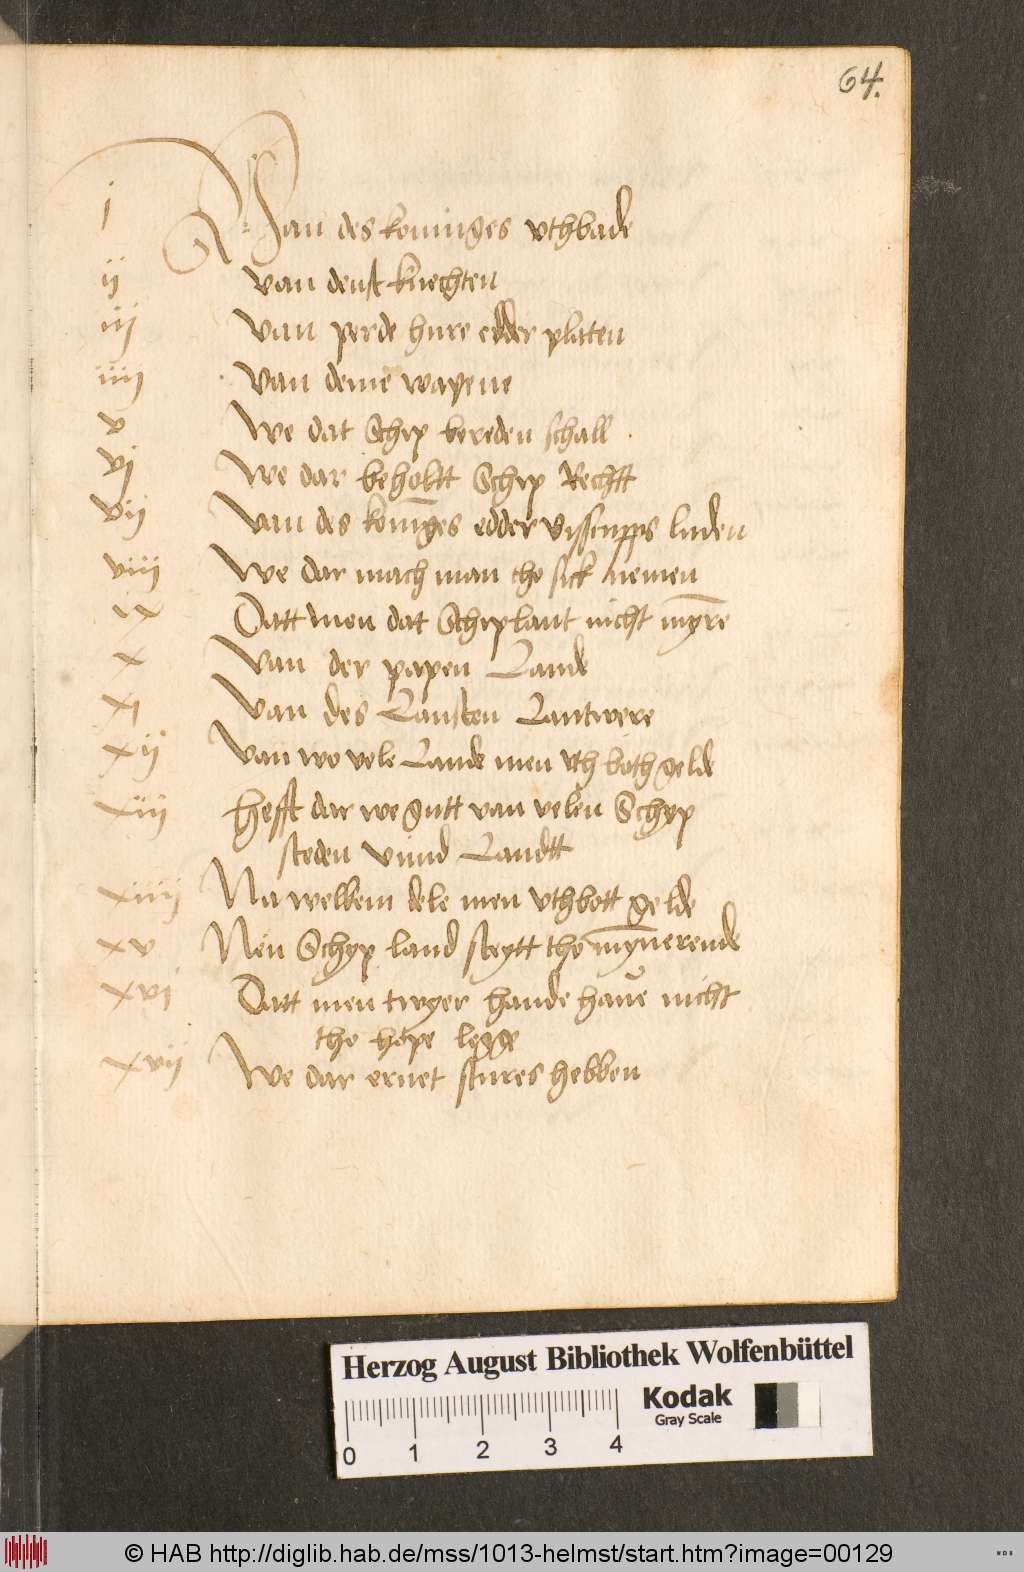 64.
i Van des koninges vthbade
ii van denst knechten
iij van perde hure edder platen
iiij van deme wapene
v We dat Schip bereden schall
vi We dar beholtt Schip Rechtt
vij Van des konīges edder visscupps luden
viij We dar mach man tho sick nemen
ix Datt men dat Schiplant nicht myn̄re
x Van der papen Lande
xi Van des Lansten Lantwere
xij Van wo vele Lande men vth both gelde
xiij Hefft dar we gutt van velen Schyp
steden vnnd Landtt
xiiij Na welkem dele men vthbott gelde
xv Nen Schyp land steytt tho mȳnerende
xvi Datt men twyer hande haue nicht
tho hope legge
xvij We dar ernet stures hebben
Herzog August Bibliothek Wolfenbüttel
Kodak
Gray Scale
0 1 2 3 4
© HAB http://diglib.hab.de/mss/1013-helmst/start.htm?image=00129